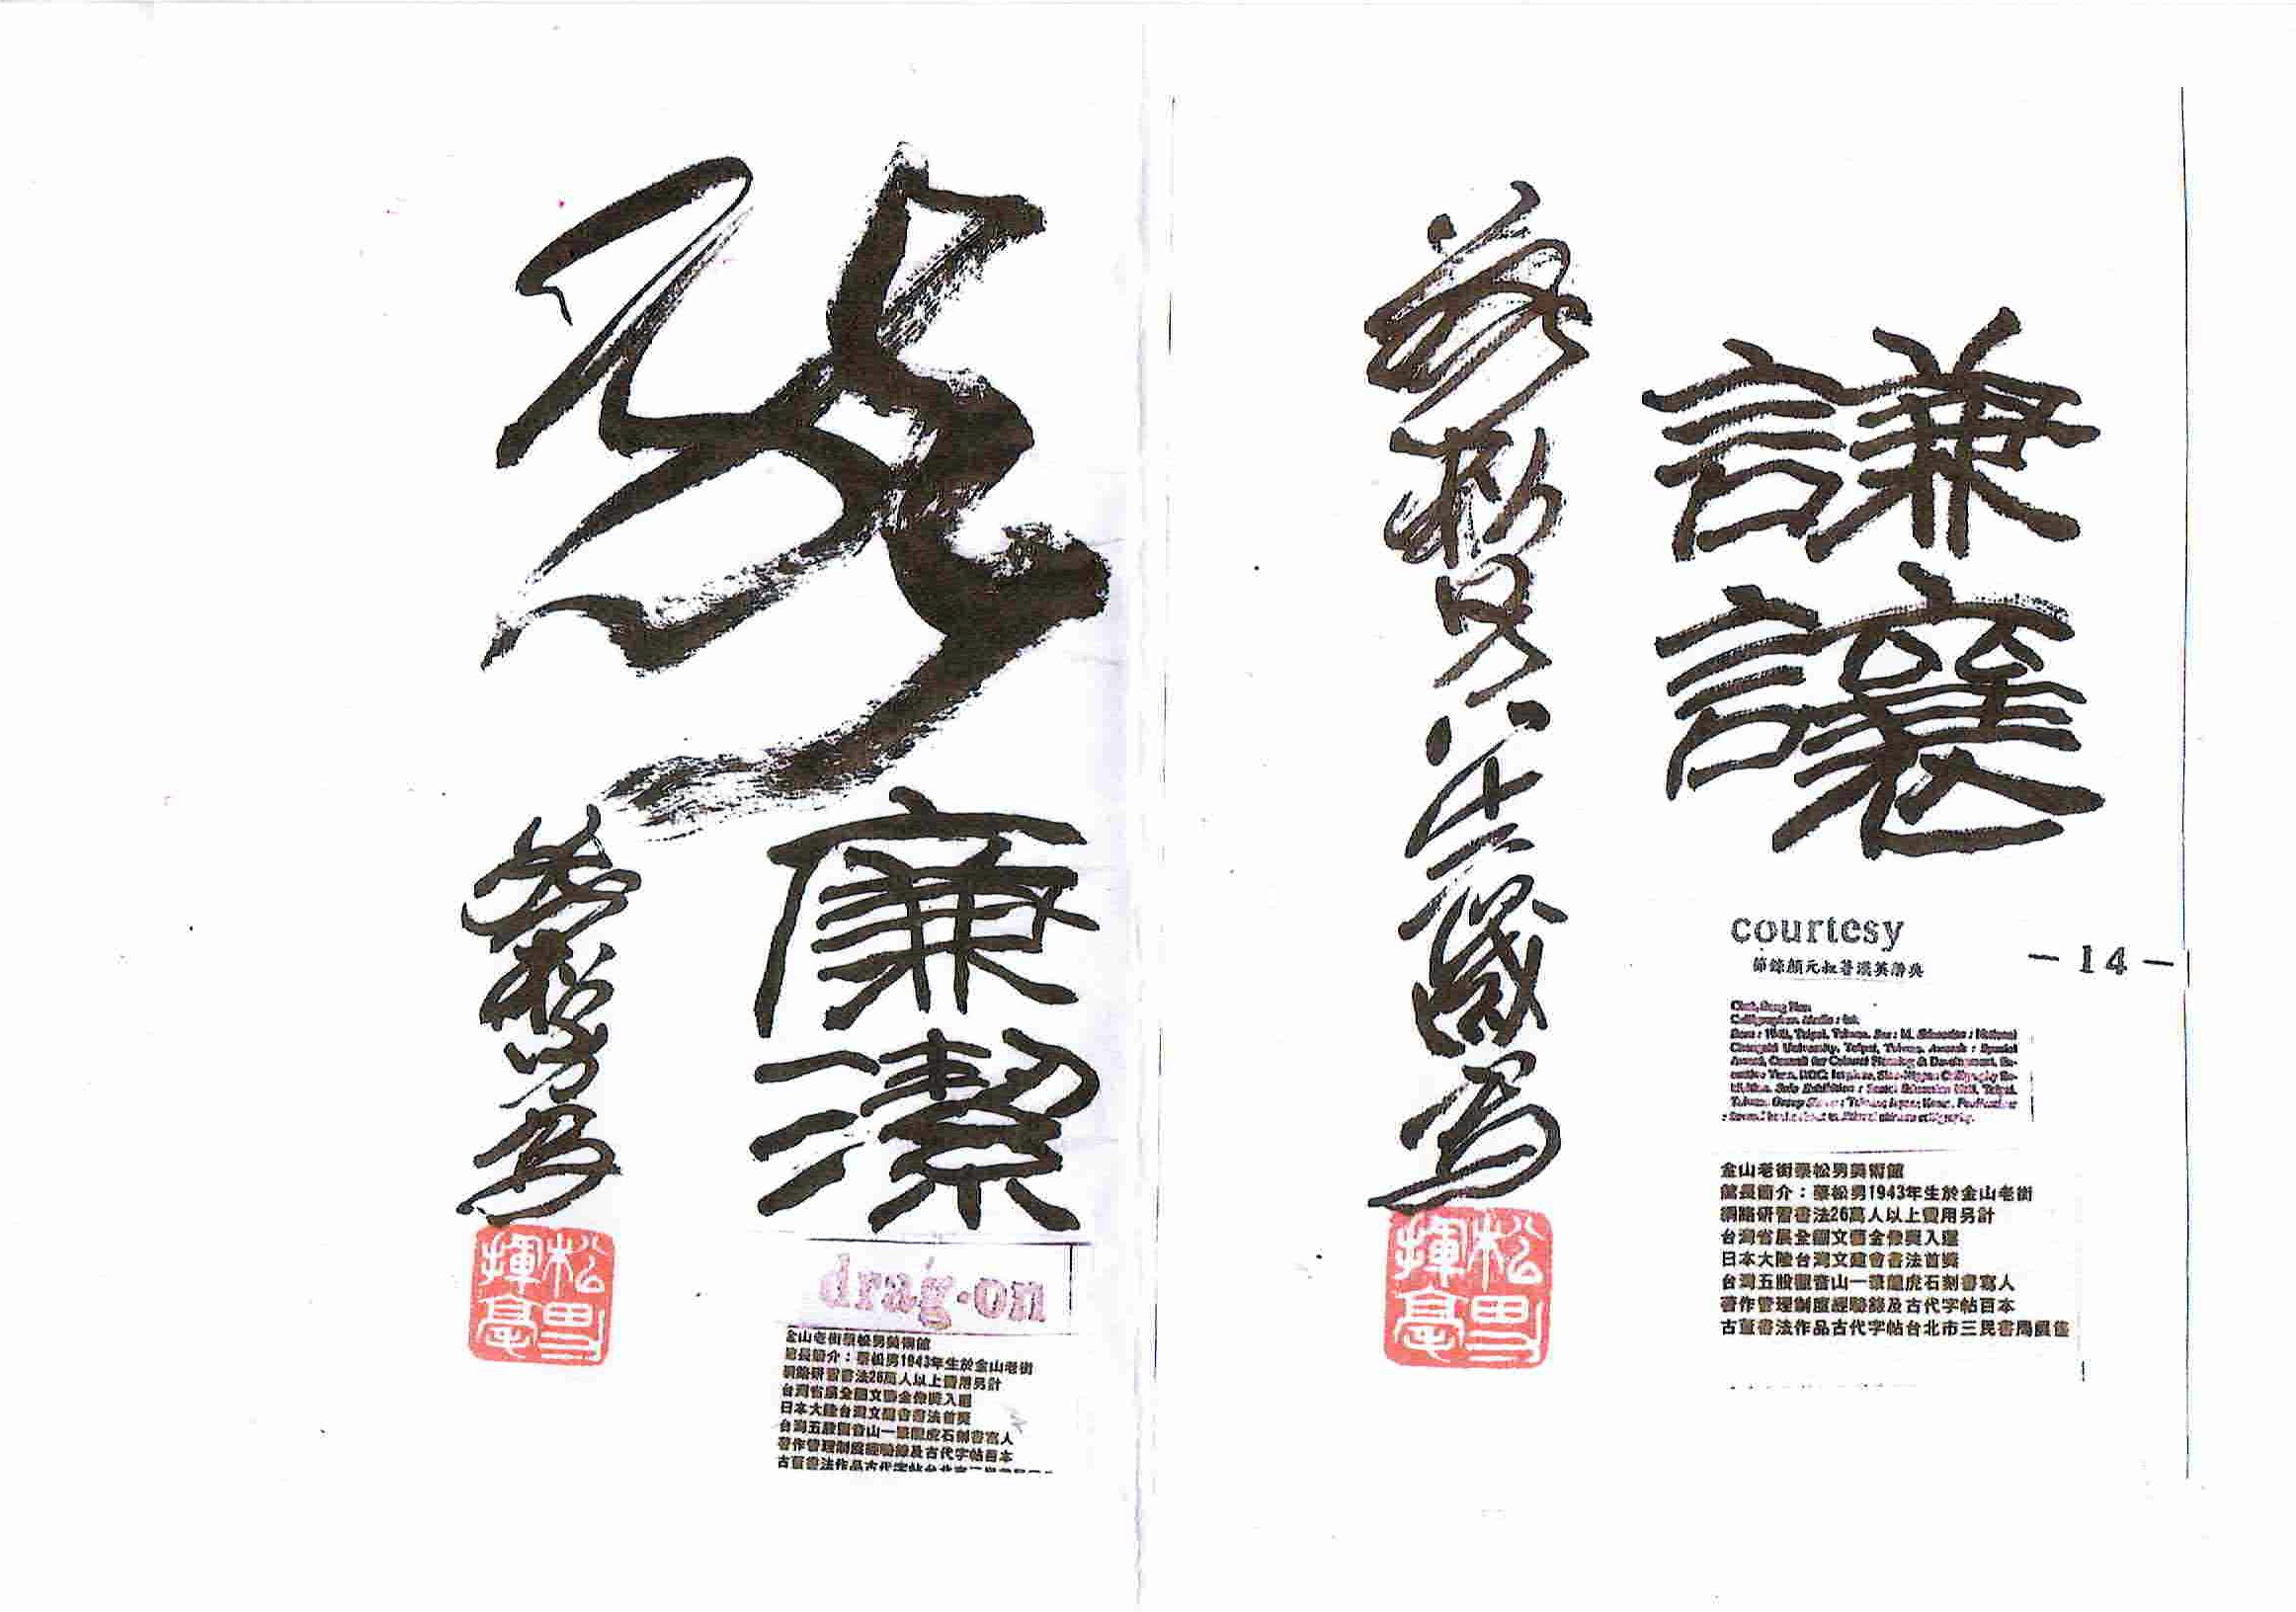 謙讓
courtesy
－14－
Calligrapher. Media : Ink.
金山老街蔡松男美術館
館長簡介：蔡松男1943年生於金山老街
網路研習書法26萬人以上費用另計
台灣省展全國文藝金像獎入選
日本大陸台灣文建會書法首獎
台灣五股觀音山一筆龍虎石刻書寫人
著作管理制度經驗錄及古代字帖百本
古董書法作品古代字帖台北市三民書局展售
蔡松男
歲寫
松男揮毫
龍
廉潔
drag·on
金山老街蔡松男美術館
館長簡介：蔡松男1943年生於金山老街
網路研習書法26萬人以上費用另計
台灣省展全國文藝金像獎入選
日本大陸台灣文建會書法首獎
台灣五股觀音山一筆龍虎石刻書寫人
著作管理制度經驗錄及古代字帖百本
古董書法作品古代字帖台北市三民書局
蔡松男寫
松男揮毫